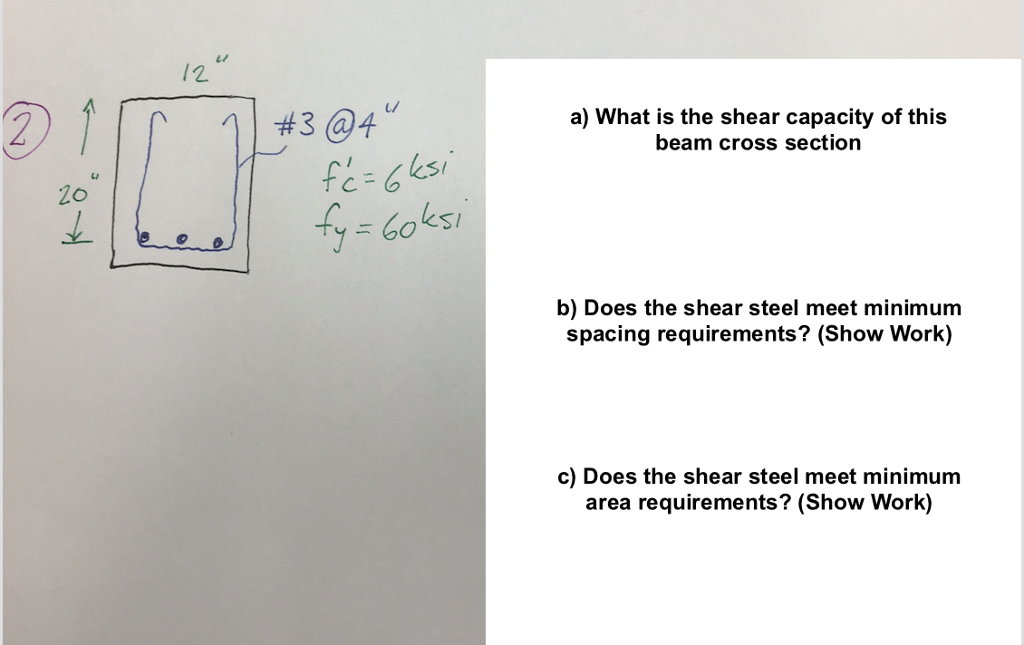 12"
2
20"
#3 @ 4"
f'c = 6 ksi
fy = 60 ksi
a) What is the shear capacity of this
beam cross section
b) Does the shear steel meet minimum
spacing requirements? (Show Work)
c) Does the shear steel meet minimum
area requirements? (Show Work)